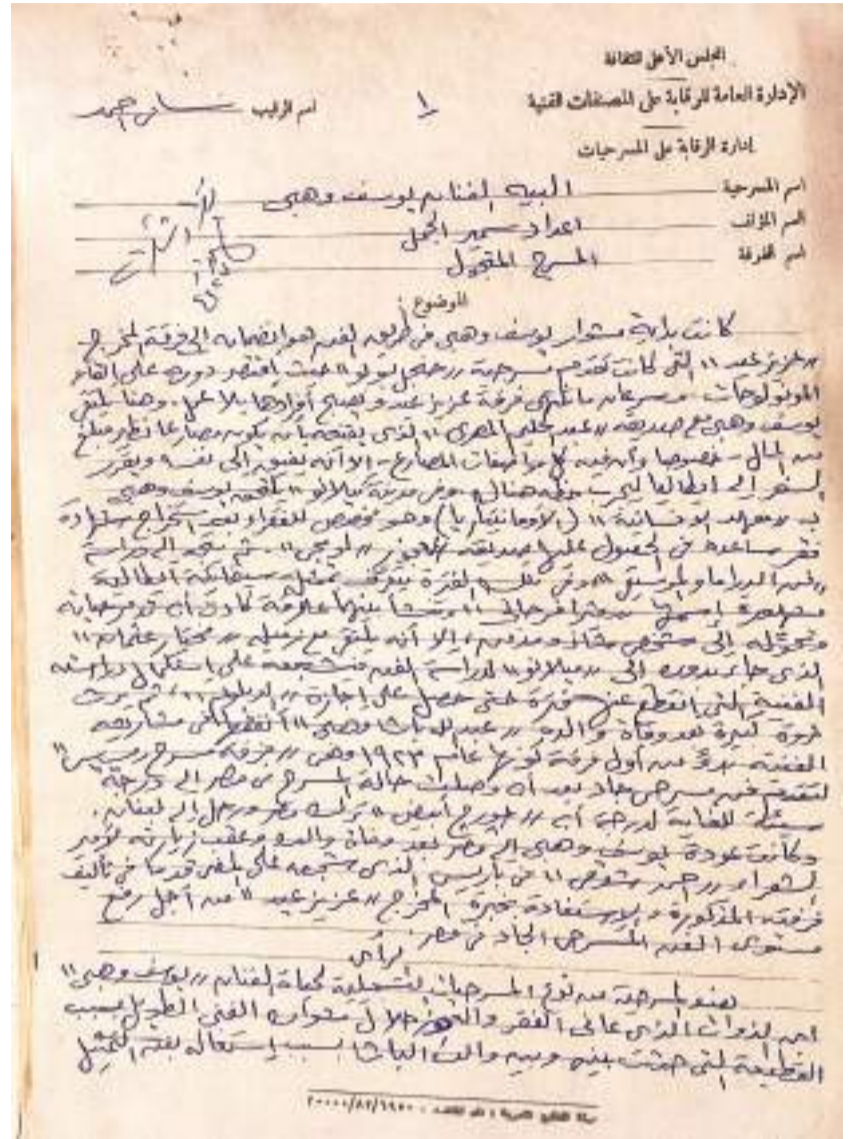 المجلس الأعلى للثقافة
الإدارة العامة للرقابة على المصنفات الفنية
١
اسم الرقيب
إدارة الرقابة على المسرحيات
اسم المسرحية البيه الفنان يوسف وهبى
اسم المؤلف اعداد سمير الجمل
اسم الفرقة المسرح المتجول
الموضوع :
كانت بداية مشوار يوسف وهبى فى طريق الفن هو انضمامه إلى فرقة المخرج
"عزيز عيد" التى كانت تقدم مسرحية حيث اقتصر دوره على القاء
المونولوجات وسرعان ما فرقة عزيز عيد ويصبح أفرادها بلا عمل. وهنا يلتقى
يوسف وهبى مع صديقه "عبد الحليم المصرى" الذى يقنعه بأن يكون مصارعا نظير مبلغ
من المال - خصوصا وأن فيه كل مواصفات المصارع - إلا أنه يفيق إلى نفسه ويقرر
السفر إلى ايطاليا حظه هناك، وفى مدينة "ميلانو" يلتحق يوسف وهبى
بـ "معهد الإنسانية" وهو مخصص للفقراء بعد استخراج شهادة
فقر ساعده فى الحصول عليها صديقه ثم يتجه إلى دراسة
"فن الدراما والموسيقى" وفى تلك الفترة يتعرف بممثلة سينمائية ايطالية
مشهورة إسمها وتنشأ بينهما علاقة كادت أن
وتحوله إلى شخص ومدمن، إلا أنه يلتقى مع زميله "مختار عثمان"
الذى جاء بدوره إلى "ميلانو" لدراسة الفن فشجعه على استكمال دراسته
الفنية التى انقطع عنها فترة حتى حصل على إجازة "الدبلوم"، ثم يرث
ثروة كبيرة بعد وفاة والده "عبد الله باشا وهبى" أنفقها فى مشاريعه
الفنية بدءً من أول فرقة كونها عام ١٩٢٣ وهى "فرقة مسرح رمسيس"
لتقديم فن مسرحى جاد بعد أن وصلت حالة المسرح فى مصر إلى درجة
سيئة للغاية لدرجة أن "جورج أبيض" ترك مصر ورحل إلى لبنان.
وكانت عودة يوسف وهبى إلى مصر بعد وفاة والده وعقب زيارته لأمير
الشعراء "احمد شوقى" فى باريس الذى شجعه على المضى قدما فى تأليف
فرقته المذكورة والاستفادة بخبرة المخرج "عزيز عيد" من أجل رفع
مستوى الفن المسرحى الجاد فى مصر.
الرأى
هذه المسرحية من نوع المسرحيات التسجيلية لحياة الفنان "يوسف وهبى"
ابن الذوات الذى عانى الفقر خلال مشواره الفنى الطويل بسبب
القطيعة التى حدثت بينه وبين والده الباشا بسبب إشتغاله بفن التمثيل